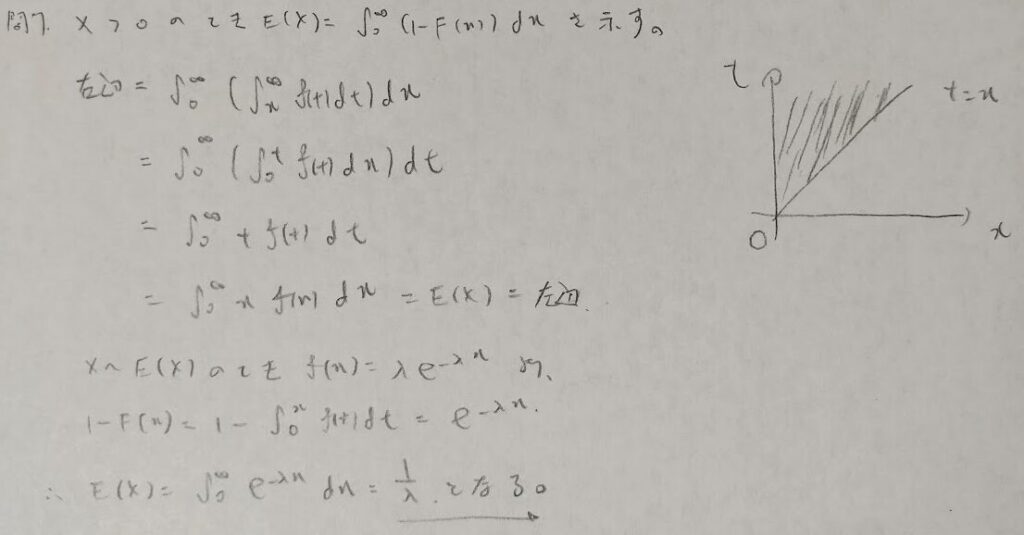 問7. X > 0 のとき E(X) = ∫₀^∞ (1-F(x)) dx を示す。
右辺 = ∫₀^∞ (∫ₓ^∞ f(t)dt) dx
= ∫₀^∞ (∫₀^t f(t) dx) dt
= ∫₀^∞ t f(t) dt
= ∫₀^∞ x f(x) dx = E(X) = 左辺.
X ~ E(λ) のとき f(x) = λe^{-λx} より、
1-F(x) = 1 - ∫₀^x f(t)dt = e^{-λx}.
∴ E(X) = ∫₀^∞ e^{-λx} dx = 1/λ. となる。
t
t=x
O
x